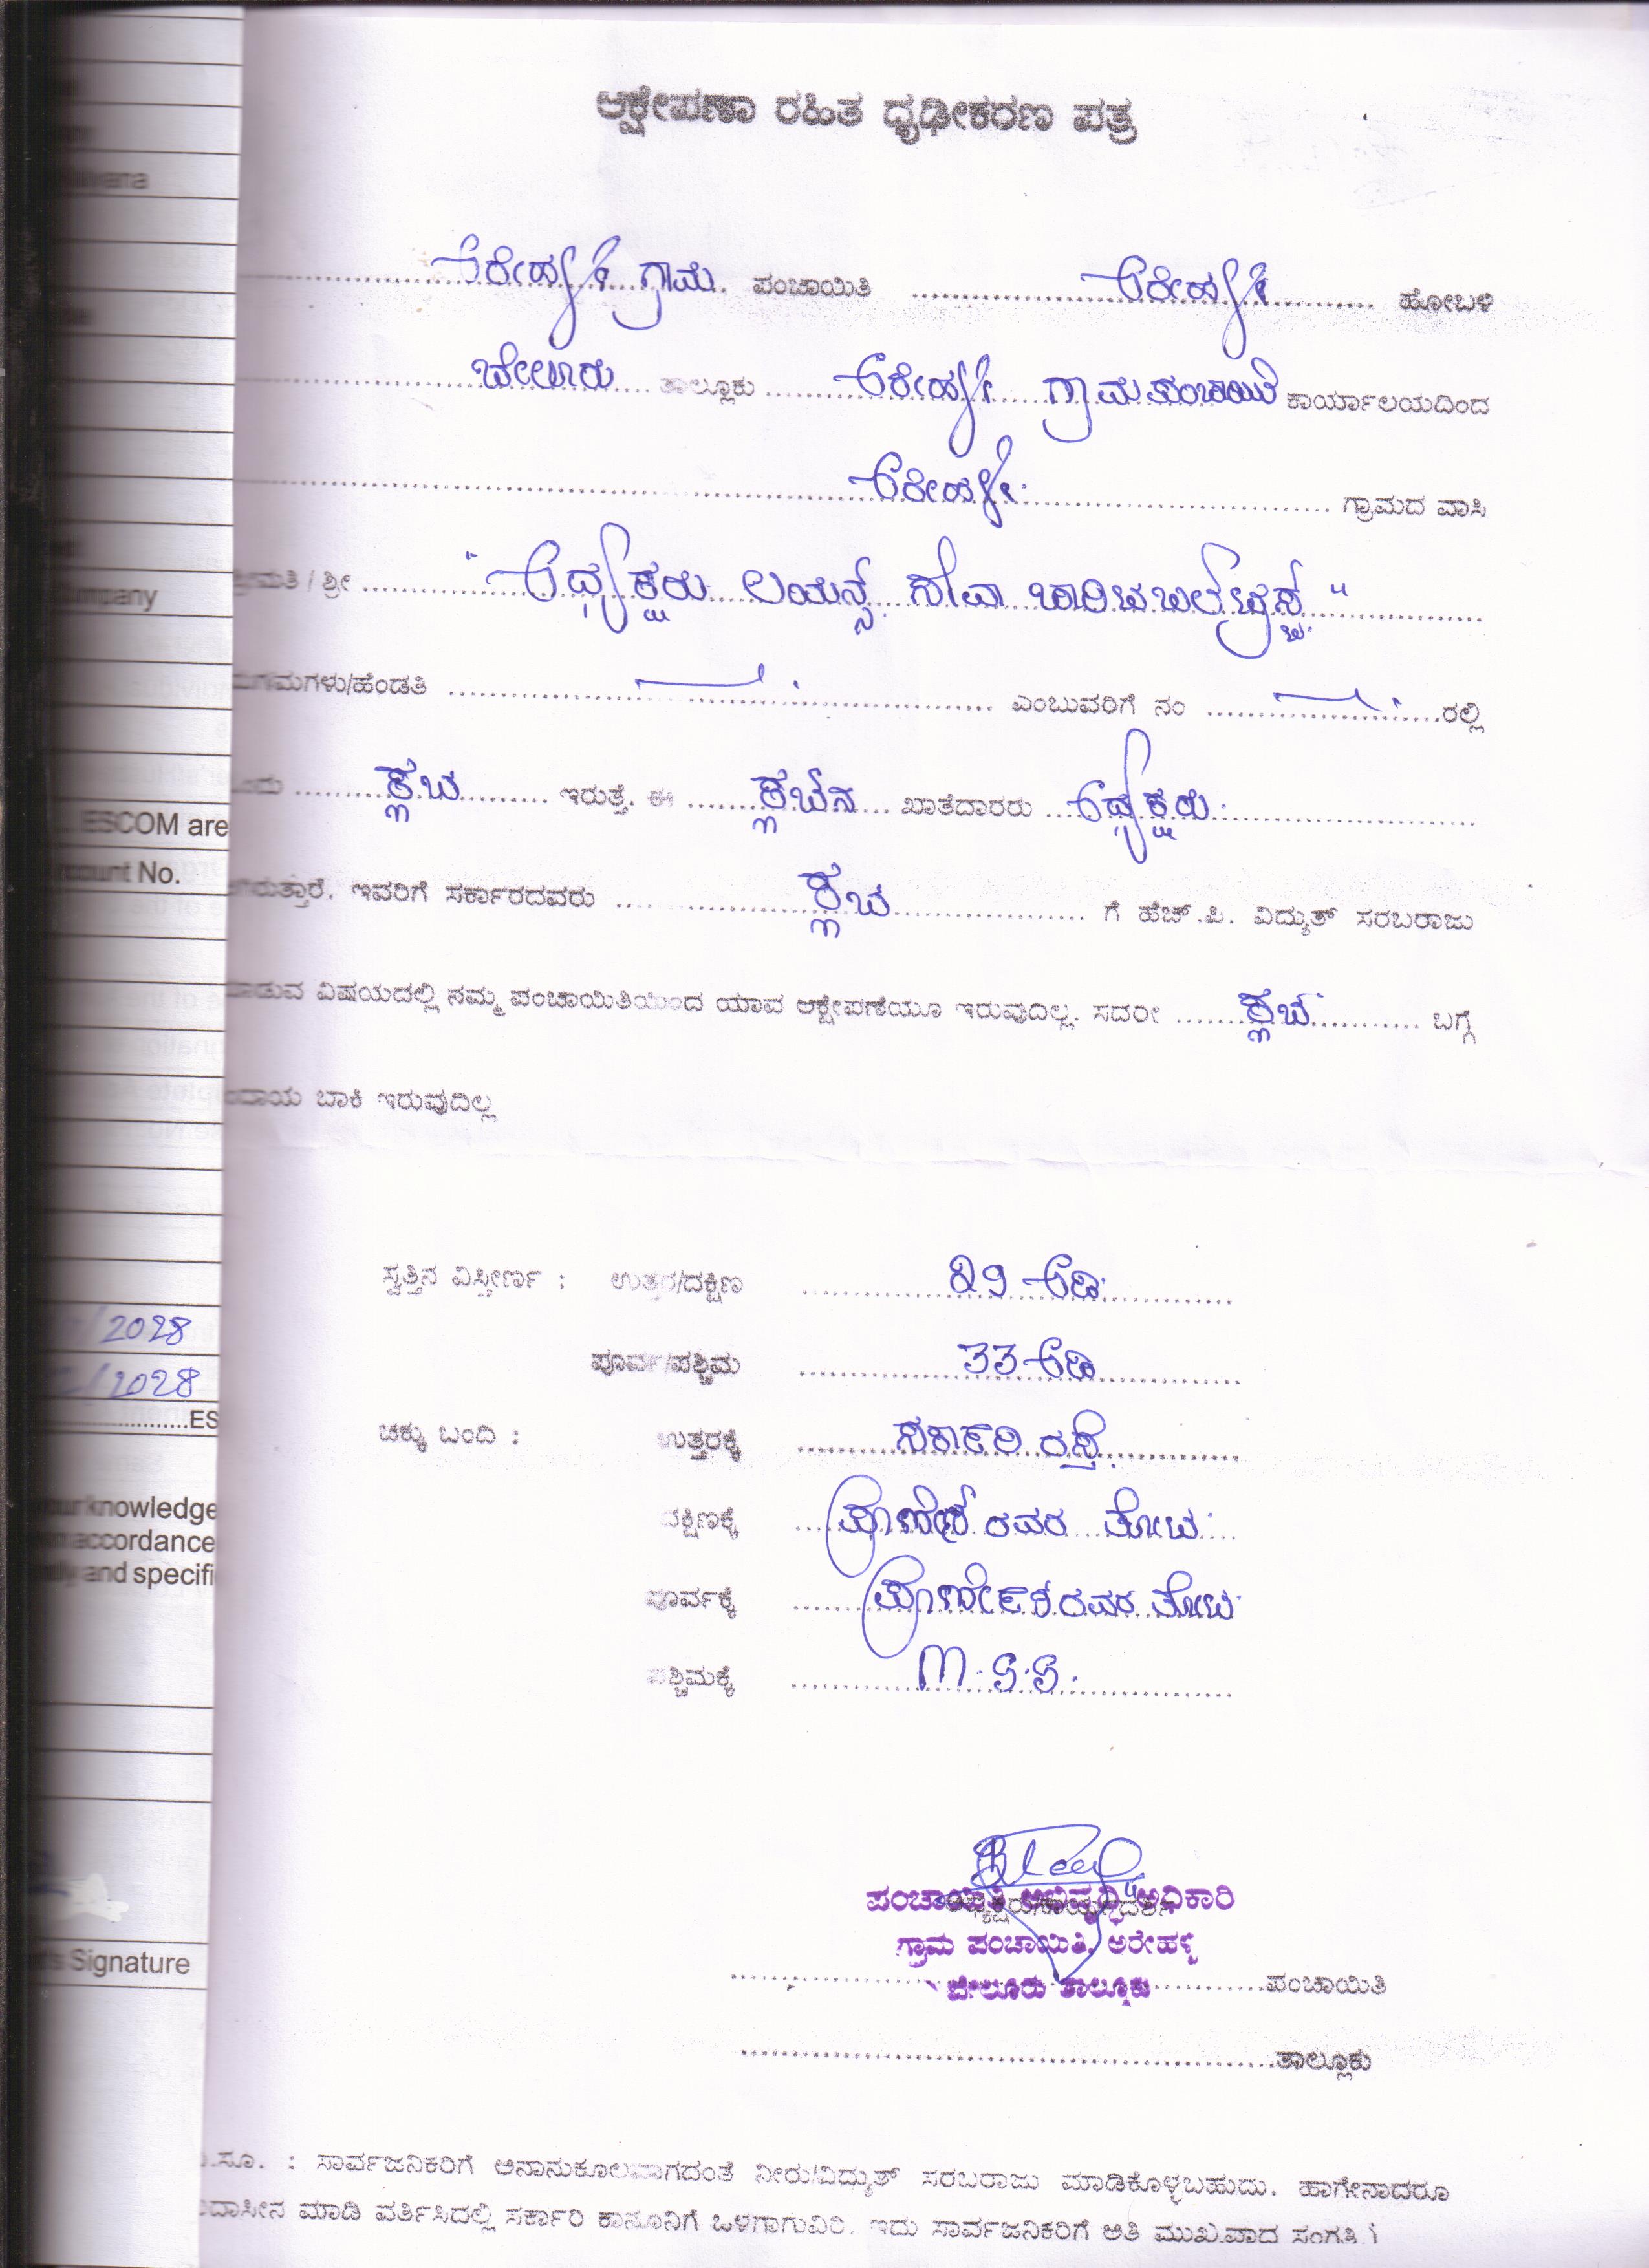 ಆಕ್ಷೇಪಣಾ ರಹಿತ ಧೃಢೀಕರಣ ಪತ್ರ
ಅರೇಹಳ್ಳಿ ಗ್ರಾಮ ಪಂಚಾಯಿತಿ ಅರೇಹಳ್ಳಿ ಹೋಬಳಿ
ಬೇಲೂರು ತಾಲ್ಲೂಕು ಅರೇಹಳ್ಳಿ ಗ್ರಾಮ ಪಂಚಾಯಿತಿ ಕಾರ್ಯಾಲಯದಿಂದ
ಅರೇಹಳ್ಳಿ ಗ್ರಾಮದ ವಾಸಿ
ಶ್ರೀಮತಿ / ಶ್ರೀ "ಅಧ್ಯಕ್ಷರು ಲಯನ್ಸ್ ಸೇವಾ ಚಾರಿಟಬಲ್ ಟ್ರಸ್ಟ್"
ಮಗ/ಮಗಳು/ಹೆಂಡತಿ ಎಂಬುವರಿಗೆ ನಂ ರಲ್ಲಿ
ಕ್ಲಬ್ ಇರುತ್ತೆ. ಈ ಕ್ಲಬ್‌ನ ಖಾತೆದಾರರು ಅಧ್ಯಕ್ಷರು
ಆಗಿರುತ್ತಾರೆ. ಇವರಿಗೆ ಸರ್ಕಾರದವರು ಕ್ಲಬ್ ಗೆ ಹೆಚ್.ಪಿ. ವಿದ್ಯುತ್ ಸರಬರಾಜು
ಮಾಡುವ ವಿಷಯದಲ್ಲಿ ನಮ್ಮ ಪಂಚಾಯಿತಿಯಿಂದ ಯಾವ ಆಕ್ಷೇಪಣೆಯೂ ಇರುವುದಿಲ್ಲ. ಸದರೀ ಕ್ಲಬ್ ಬಗ್ಗೆ
ಕಂದಾಯ ಬಾಕಿ ಇರುವುದಿಲ್ಲ
ಸ್ವತ್ತಿನ ವಿಸ್ತೀರ್ಣ : ಉತ್ತರ/ದಕ್ಷಿಣ 29 ಅಡಿ
ಪೂರ್ವ/ಪಶ್ಚಿಮ 33 ಅಡಿ
ಚಕ್ಕು ಬಂದಿ : ಉತ್ತರಕ್ಕೆ ಸರ್ಕಾರಿ ರಸ್ತೆ
ದಕ್ಷಿಣಕ್ಕೆ ಪ್ರಾಣೇಶ್ ರವರ ತೋಟ
ಪೂರ್ವಕ್ಕೆ ಪ್ರಾಣೇಶ್ ರವರ ತೋಟ
ಪಶ್ಚಿಮಕ್ಕೆ M.S.S.
ಪಂಚಾಯಿತಿ ಅಭಿವೃದ್ಧಿ ಅಧಿಕಾರಿ
ಗ್ರಾಮ ಪಂಚಾಯಿತಿ, ಅರೇಹಳ್ಳಿ
ಬೇಲೂರು ತಾಲ್ಲೂಕು ಪಂಚಾಯಿತಿ
ತಾಲ್ಲೂಕು
ವಿ.ಸೂ. : ಸಾರ್ವಜನಿಕರಿಗೆ ಅನಾನುಕೂಲವಾಗದಂತೆ ನೀರು/ವಿದ್ಯುತ್ ಸರಬರಾಜು ಮಾಡಿಕೊಳ್ಳಬಹುದು. ಹಾಗೇನಾದರೂ
ಉದಾಸೀನ ಮಾಡಿ ವರ್ತಿಸಿದಲ್ಲಿ ಸರ್ಕಾರಿ ಕಾನೂನಿಗೆ ಒಳಗಾಗುವಿರಿ. ಇದು ಸಾರ್ವಜನಿಕರಿಗೆ ಅತಿ ಮುಖ್ಯವಾದ ಸಂಗತಿ.
ESCOM are
count No.
/2028
/2028
ES
our knowledge
accordance
and specifi
Signature